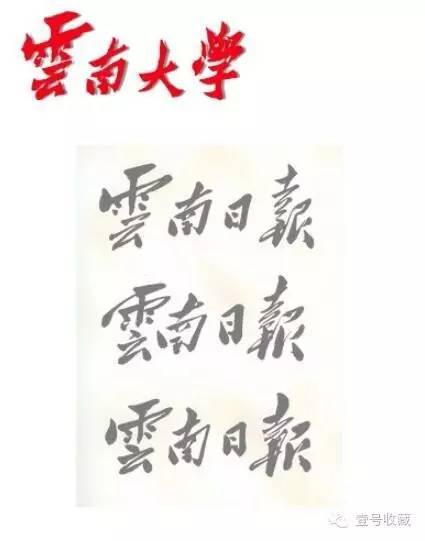 雲南大學
雲南日報
雲南日報
雲南日報
壹号收藏